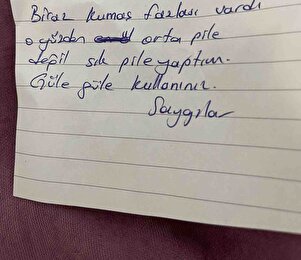 Biraz kumaş fazlası vardı
o yüzden orta pile
değil sık pile yaptım.
Güle güle kullanınız.
Saygılar